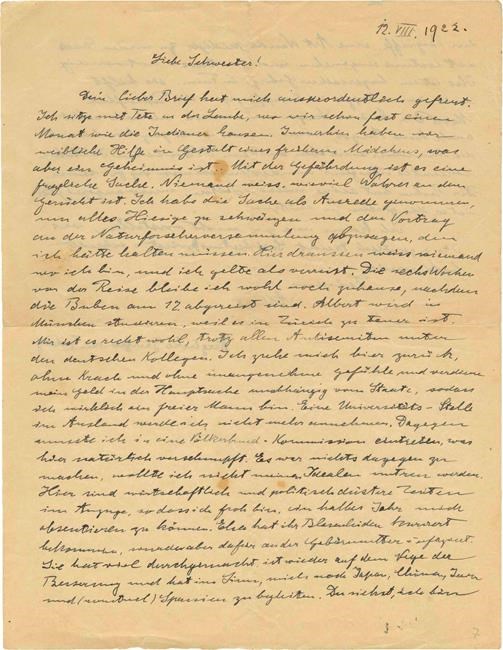 12. VIII. 1922.
Liebe Schwester!
Dein lieber Brief hat mich ausserordentlich gefreut.
Ich sitze mit Tete in der Laube, wo wir schon fast einen
Monat wie die Indianer hausen. Immerhin haben wir
weibliche Hilfe in Gestalt eines früheren Mädchens, was
aber ein Geheimnis ist. Mit der Gefährdung ist es eine
fragliche Sache. Niemand weiss, wieviel Wahres an dem
Gerücht ist. Ich habe die Sache als Ausrede genommen,
um alles Hiesige zu schwänzen und den Vortrag
an der Naturforscherversammlung abzusagen, den
ich hätte halten müssen. Hier draussen weiss niemand
wo ich bin, und ich gelte als verreist. Die sechs Wochen
vor der Reise bleibe ich wohl noch zuhause, nachdem
die Buben am 12 abgereist sind. Albert wird in
München studieren, weil es in Zürich zu teuer ist.
Mir ist es recht wohl, trotz allen Antisemiten unter
den deutschen Kollegen. Ich ziehe mich hier zurück,
ohne Krach und ohne unangenehme Gefühle und verdiene
mein Geld in der Hauptsache unabhängig vom Staate, sodass
ich wirklich ein freier Mann bin. Eine Universitäts-Stelle
im Ausland werde ich nicht mehr annehmen. Dagegen
musste ich in eine Völkerbund-Kommission eintreten, was
hier natürlich verschnupft. Es war nichts dagegen zu
machen, wollte ich nicht meinen Idealen untreu werden.
Hier sind wirtschaftlich und politisch düstere Zeiten
im Anzuge, sodass ich froh bin, ein halbes Jahr mich
absentieren zu können. Elsa hat ihr Blasenleiden kuriert
bekommen, wurde aber dafür an der Gebärmutter infiziert.
Sie hat viel durchgemacht, ist wieder auf dem Wege der
Besserung und hat im Sinn, mich nach Japan, China, Java
und (eventuel) Spanien zu begleiten. Du siehst, ich bin